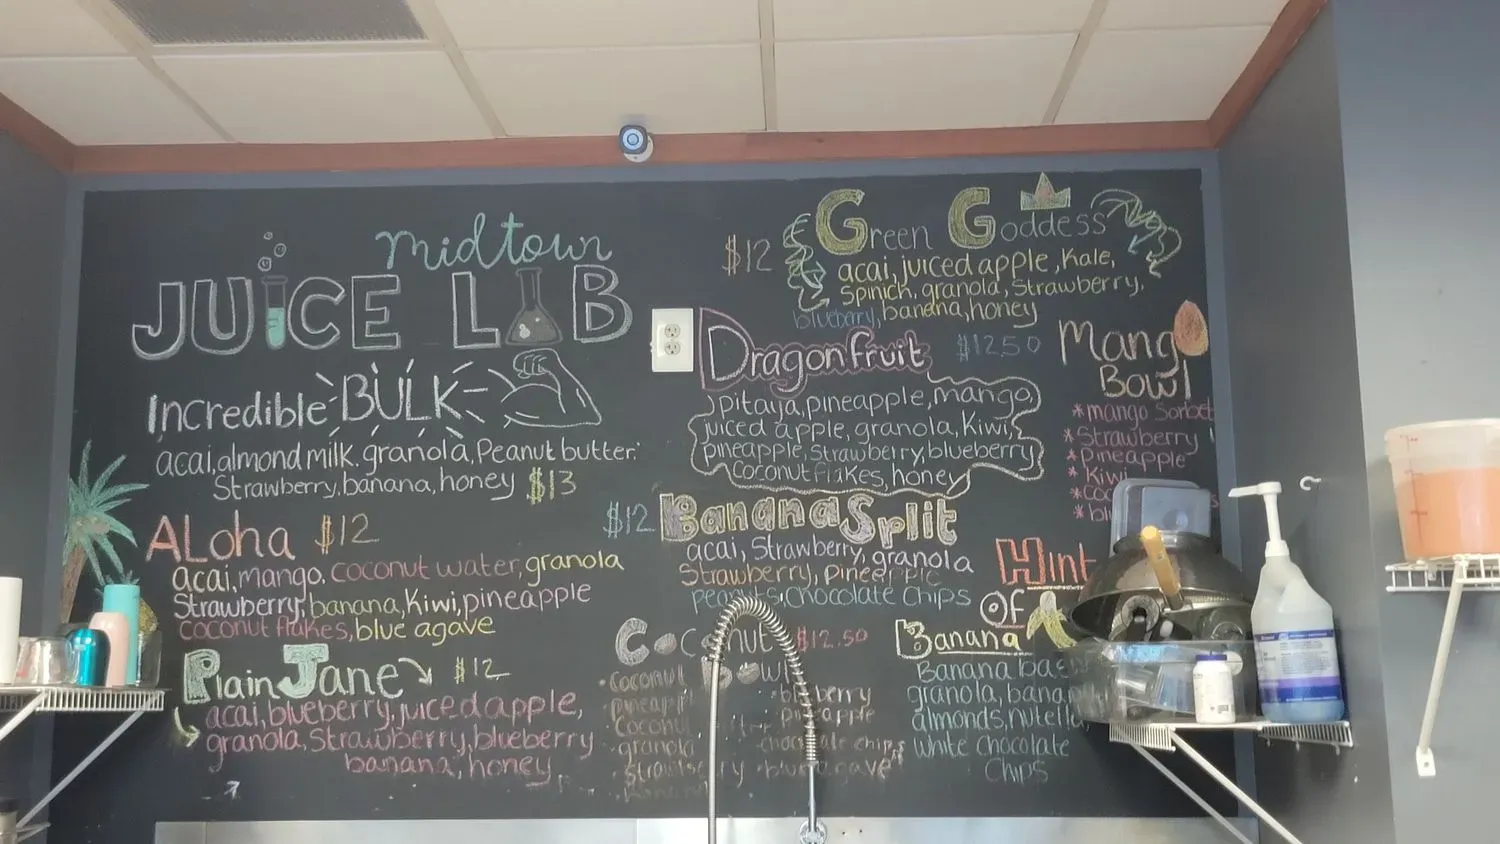 midtown
JUICE LAB
Incredible BULK
acai, almond milk. granola, Peanut butter.
Strawberry, banana, honey $13
ALoha $12
acai, mango. coconut water, granola
Strawberry, banana, Kiwi, pineapple
coconut flakes, blue agave
Plain Jane $12
acai, blueberry, juiced apple,
granola, strawberry, blueberry
banana, honey
$12 Green Goddess
acai, juiced apple, Kale,
Spinich, granola, Strawberry,
blueberry, banana, honey
Dragonfruit $12.50
pitaya, pineapple, mango,
juiced apple, granola, Kiwi,
pineapple, Strawberry, blueberry
coconut flakes, honey
$12 Banana Split
acai, Strawberry, granola
Strawberry, pineapple
peanuts, chocolate chips
Coconut $12.50
Bowl
coconut
Coconut
granola
blueberry
pineapple
chocolate chips
Mango
Bowl
*mango Sorbet
*Strawberry
*Pineapple
*Kiwi
Hint
OF
Banana
Banana base
granola, banana
almonds, nutella
white chocolate
Chips